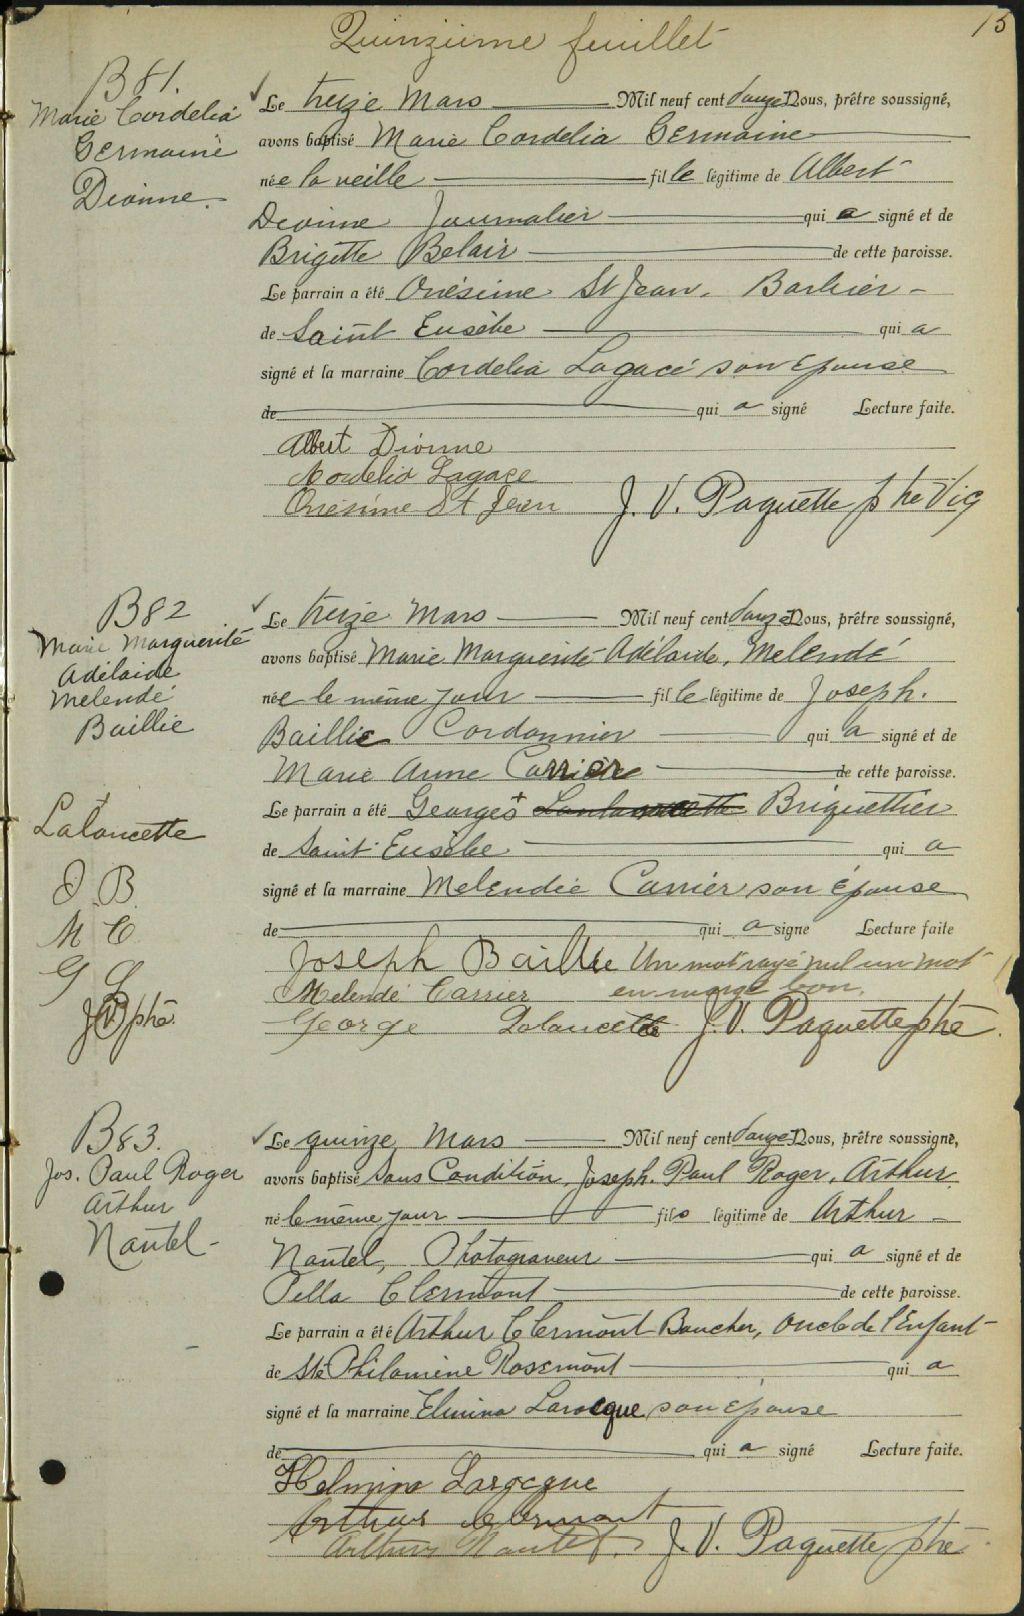 Quinzième feuillet
15
B 81.
Marie Cordelia
Germaine
Dionne.
Le treize Mars Mil neuf cent douze Nous, prêtre soussigné,
avons baptisé Marie Cordelia Germaine
née la veille fille légitime de Albert
Dionne Journalier qui a signé et de
Brigette Belair de cette paroisse.
Le parrain a été Onésime St Jean, Barbier
de Saint Eusèbe qui a
signé et la marraine Cordelia Lagacé son épouse
de qui a signé Lecture faite.
Albert Dionne
Cordelia Lagace
Onesime St Jean J. V. Paquette ptre Vic
B 82
Marie Marguerite
Adélaide
Melendé
Baillie
Le treize Mars Mil neuf cent douze Nous, prêtre soussigné,
avons baptisé Marie Marguerite Adélaide, Melendé
née le même jour fille légitime de Joseph.
Baillie Cordonnier qui a signé et de
Marie Anne Carrière de cette paroisse.
+
Lalancette
Le parrain a été Georges + Briquettier
de Saint Eusèbe qui a
signé et la marraine Melendée Carrier son épouse
de qui a signe Lecture faite
J. B.
M C
G L
JVP ptre
Joseph Baillie Un mot rayé nul un mot
Melendé Carrier en marge bon.
George Lalancette J. V. Paquette ptre
B 83.
Jos. Paul Roger
Arthur
Nantel
Le quinze Mars Mil neuf cent douze Nous, prêtre soussigné,
avons baptisé sous Condition, Joseph. Paul Roger, Arthur
né le même jour fils légitime de Arthur
Nantel, Photograveur qui a signé et de
Pella Clermont de cette paroisse.
Le parrain a été Arthur Clermont Boucher, oncle de l'Enfant
de Ste Philomène Rosemont qui a
signé et la marraine Elmina Larocque son épouse
de qui a signé Lecture faite.
Helmina Larocque
Arthur Clermont
Arthur Nantel. J. V. Paquette ptre